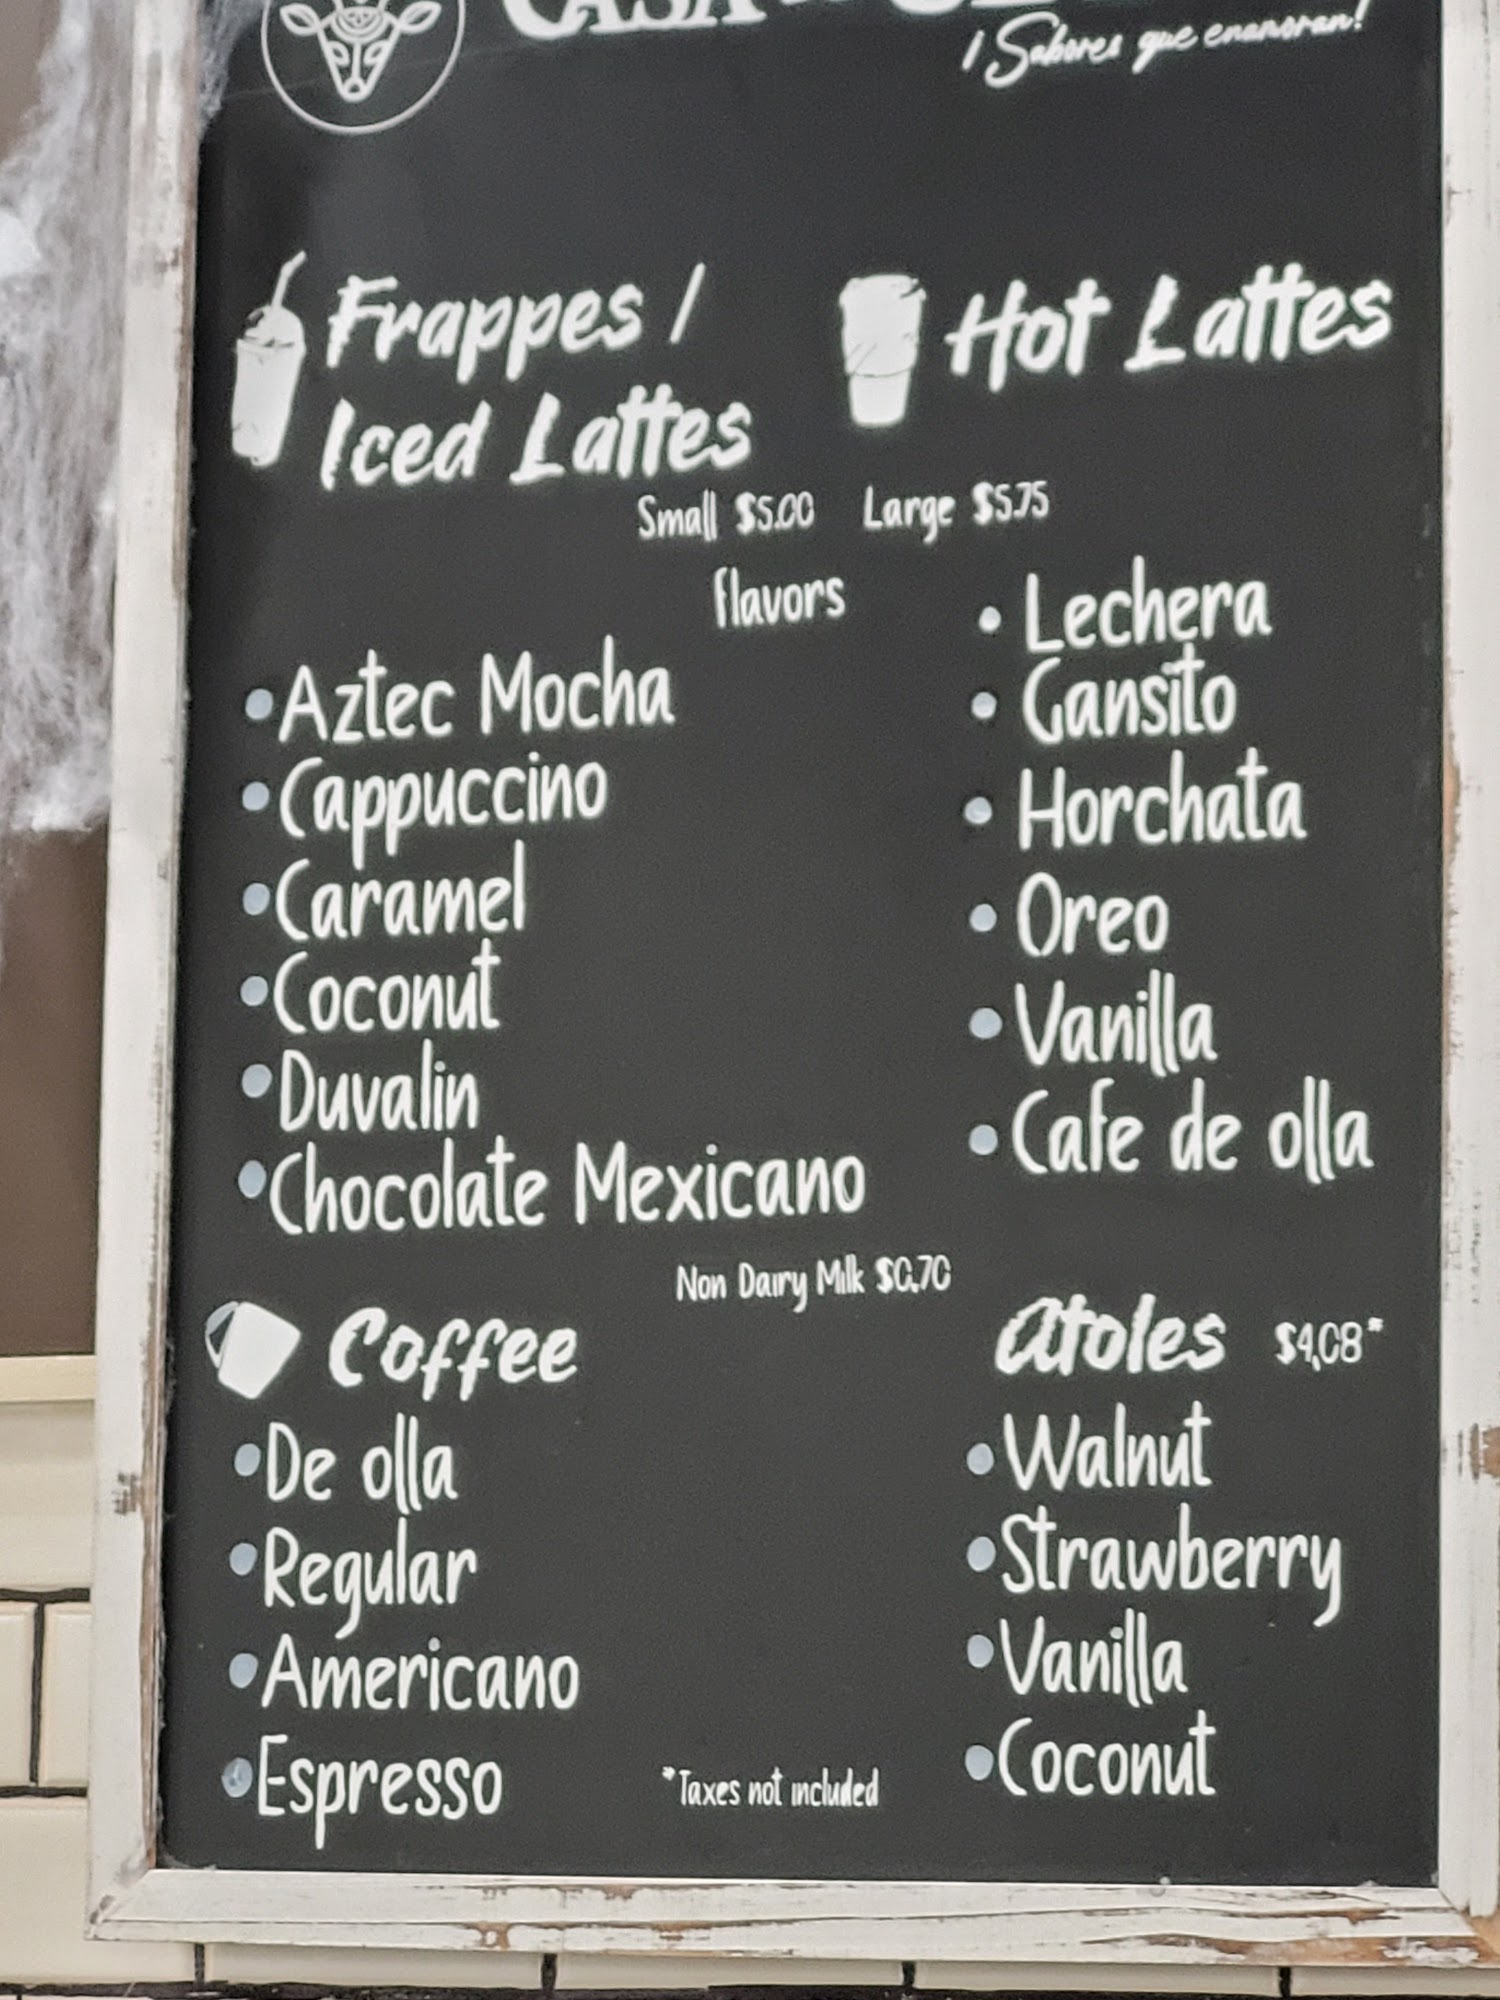 CASA
¡Sabores que enamoran!
Frappes /
Iced Lattes
Hot Lattes
Small $5.00 Large $5.75
flavors
• Aztec Mocha
• Cappuccino
• Caramel
• Coconut
• Duvalin
• Chocolate Mexicano
• Lechera
• Gansito
• Horchata
• Oreo
• Vanilla
• Cafe de olla
Non Dairy Milk $0.70
Coffee
• De olla
• Regular
• Americano
• Espresso
Atoles $4.08*
• Walnut
• Strawberry
• Vanilla
• Coconut
*Taxes not included